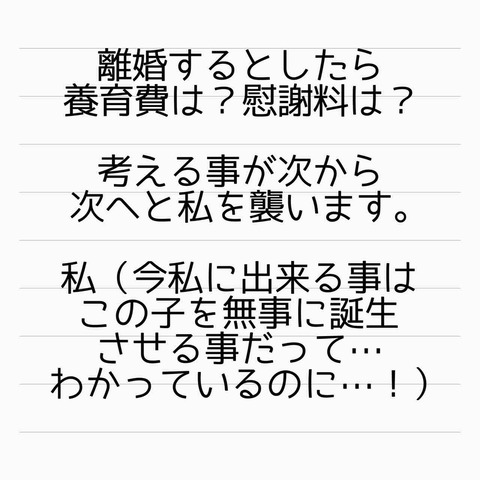 離婚するとしたら
養育費は？慰謝料は？
考える事が次から
次へと私を襲います。
私（今私に出来る事は
この子を無事に誕生
させる事だって…
わかっているのに…！）